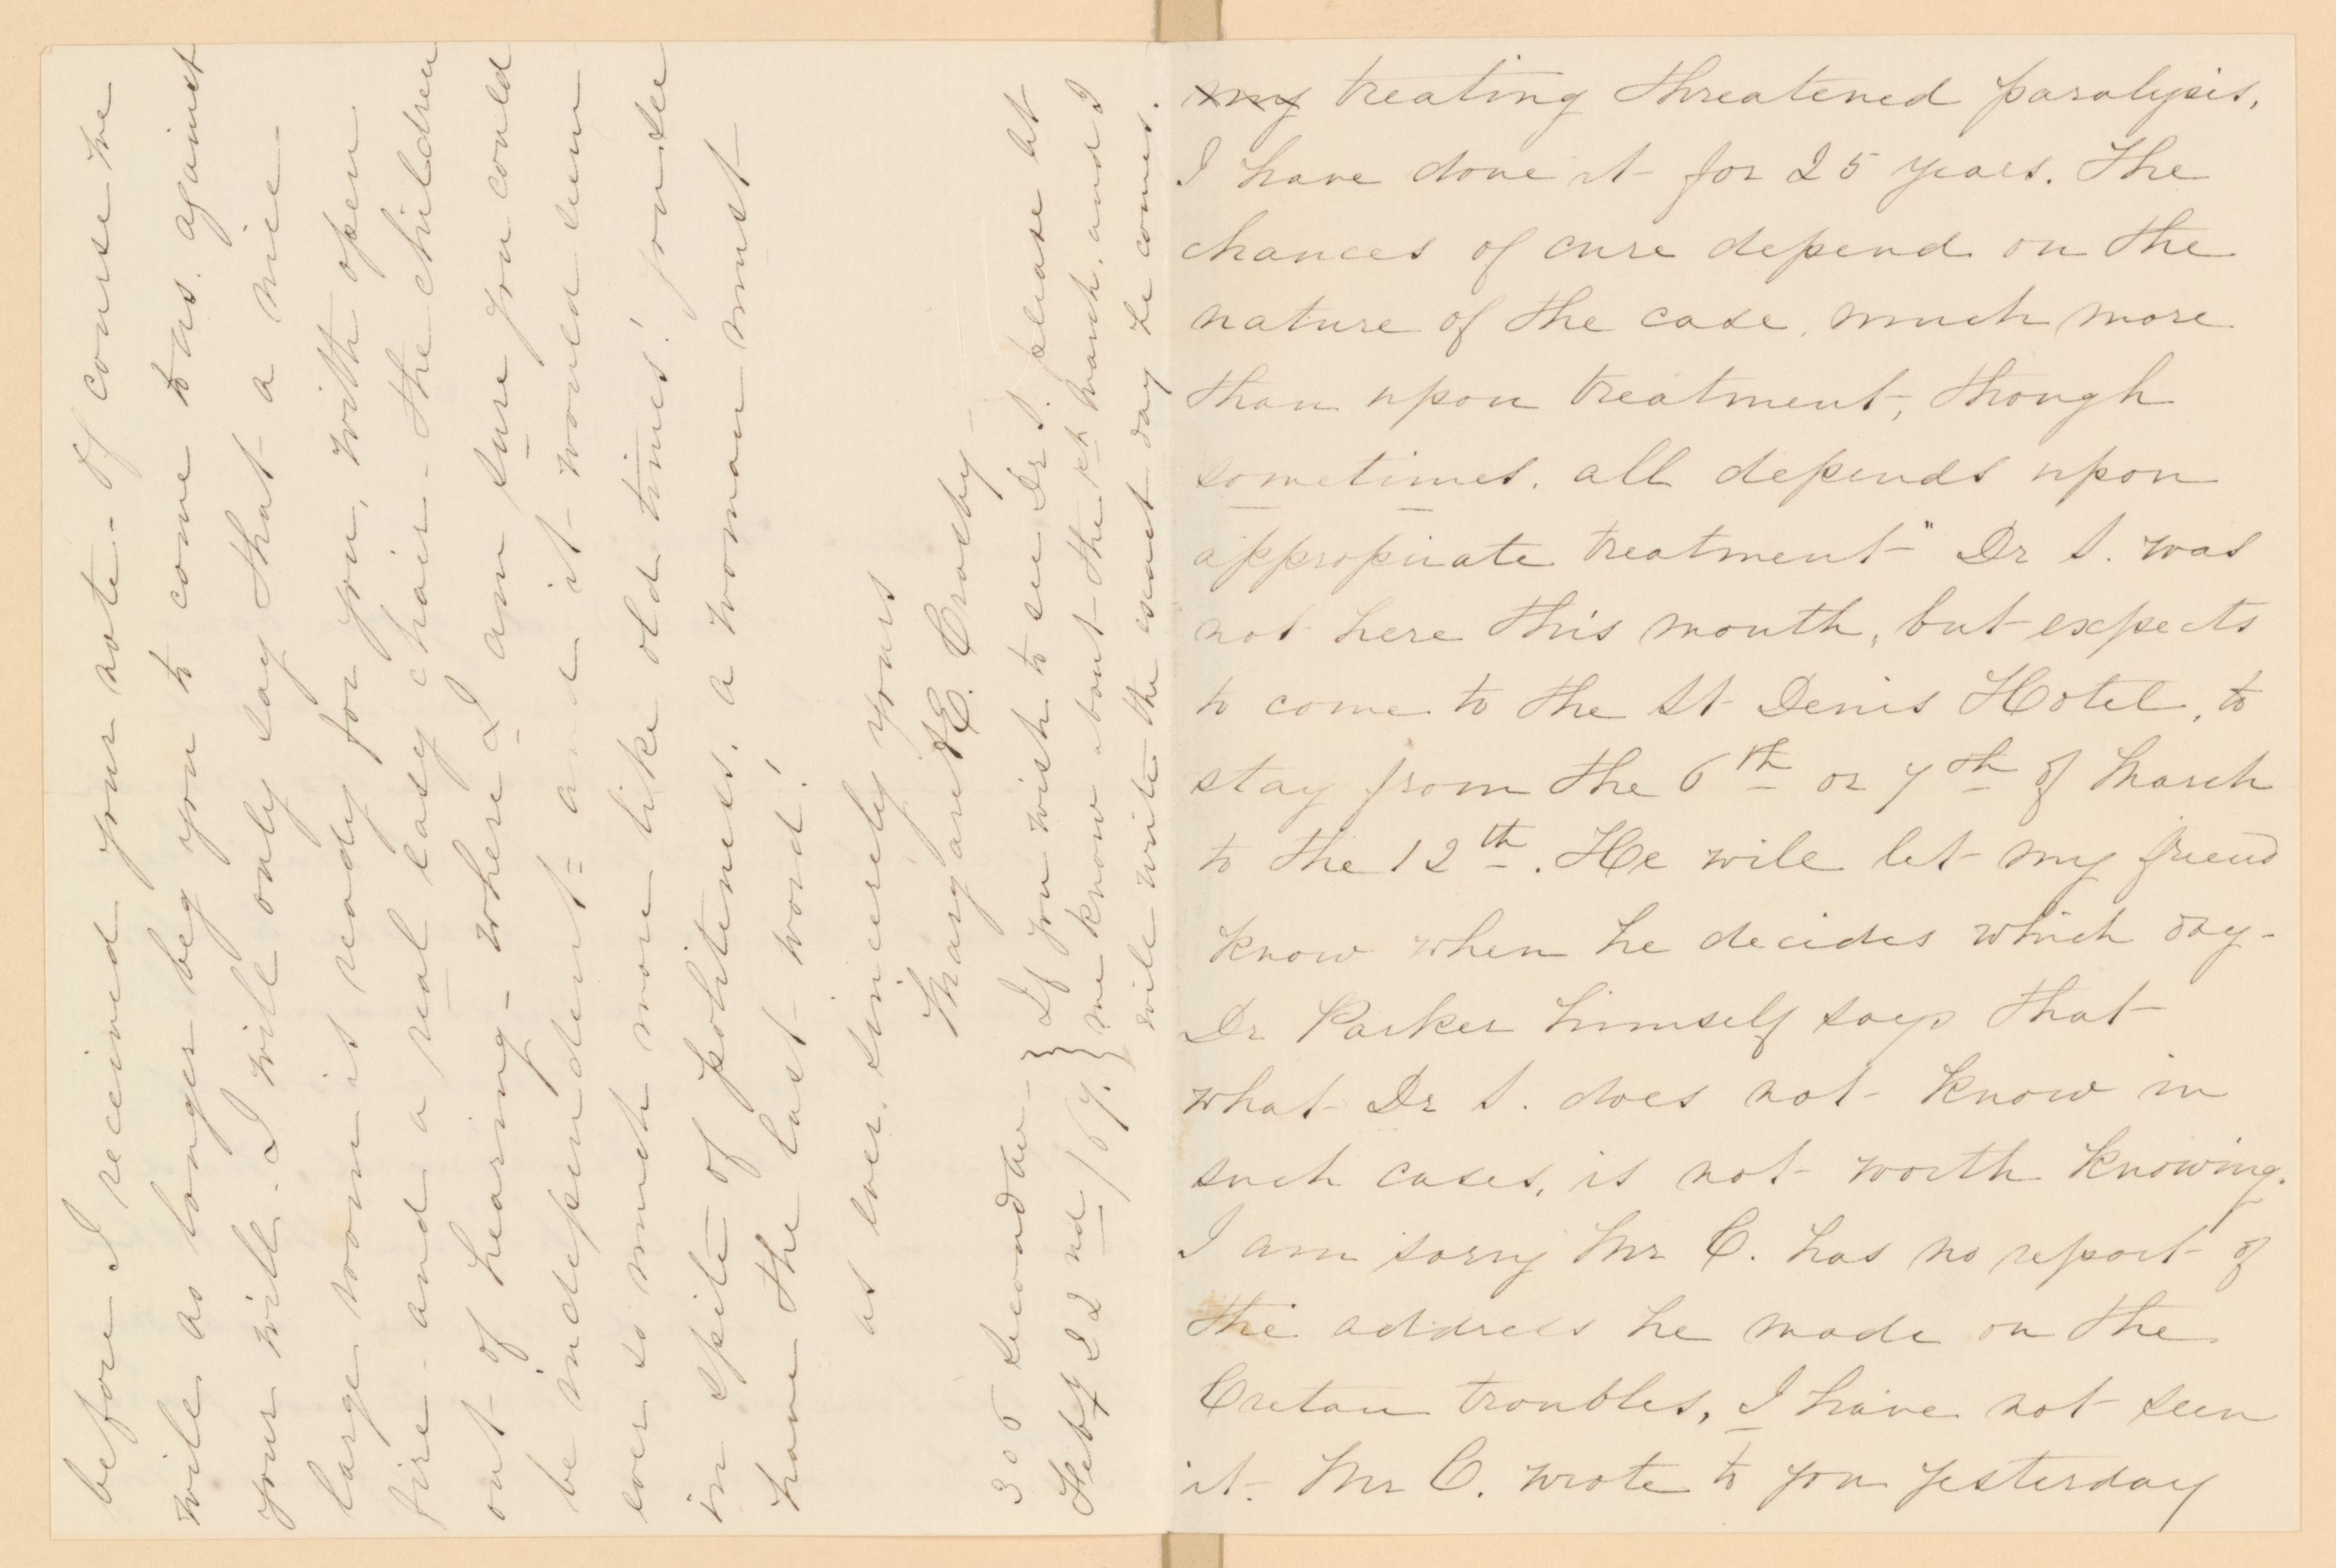 my treating threatened paralysis,
I have done it for 25 years. The
chances of cure depend on the
nature of the case, much more
than upon treatment, though
sometimes, all depends upon
appropriate treatment" Dr S. was
not here this month, but expects
to come to the St Denis Hotel, to
stay from the 6th or 7th of March
to the 12th. He will let my friend
know when he decides which day-
Dr Parker himself says that
what Dr S. does not know in
such cases, is not worth knowing.
I am sorry Mr C. has no report of
the address he made on the
Cretan troubles, I have not seen
it. Mr C. wrote to you yesterday
before I received your note - Of course we
will no longer beg you to come to us. against
your will. I will only say that a nice
large room is ready for you, with open
fire - and a real easy chair - the children
out of hearing - where I am sure you could
be independent = and it would seem
ever so much more like old times! you see
in spite of politeness, a woman must
have the last word!
as ever, sincerely yours
Margaret E. Crosby -
306 Second Av -
Feby 22nd / 67.
If you wish to see Dr S. please let
me know about the 1st March, and I
will write the exact day he comes.